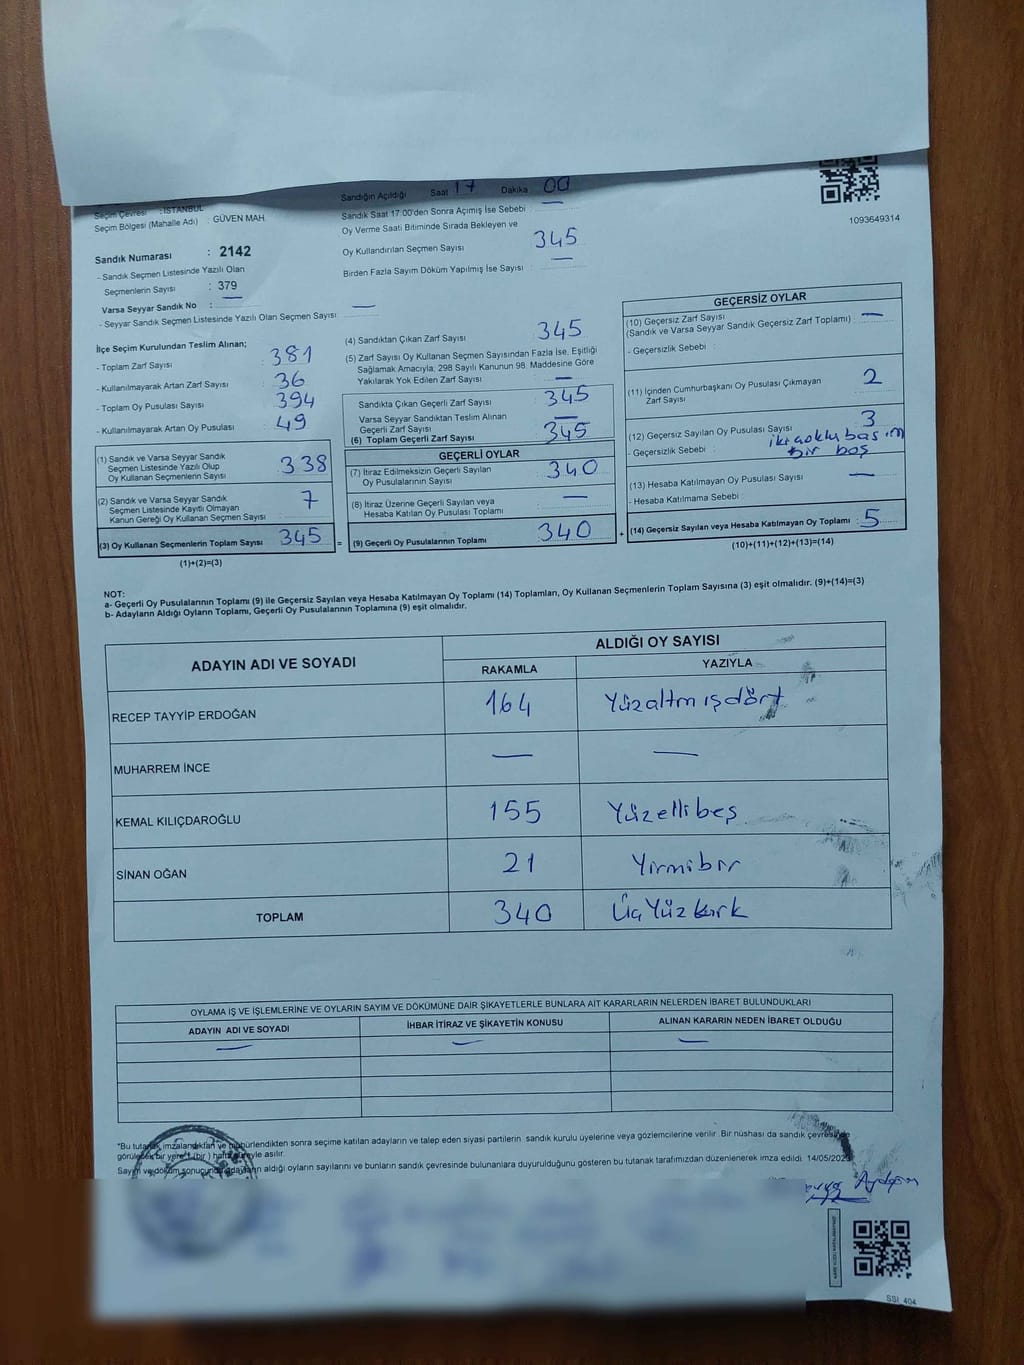 Seçim Çevresi : İSTANBUL
Seçim Bölgesi (Mahalle Adı) : GÜVEN MAH.
Sandık Numarası : 2142
- Sandık Seçmen Listesinde Yazılı Olan
Seçmenlerin Sayısı : 379
Varsa Seyyar Sandık No : —
- Seyyar Sandık Seçmen Listesinde Yazılı Olan Seçmen Sayısı : —
Sandığın Açıldığı Saat 17 Dakika 00
Sandık Saat 17:00'den Sonra Açımış İse Sebebi —
Oy Verme Saati Bitiminde Sırada Bekleyen ve
Oy Kullandırılan Seçmen Sayısı 345
Birden Fazla Sayım Döküm Yapılmış İse Sayısı : —
1093649314
İlçe Seçim Kurulundan Teslim Alınan;
- Toplam Zarf Sayısı : 381
- Kullanılmayarak Artan Zarf Sayısı : 36
- Toplam Oy Pusulası Sayısı : 394
- Kullanılmayarak Artan Oy Pusulası : 49
(1) Sandık ve Varsa Seyyar Sandık
Seçmen Listesinde Yazılı Olup
Oy Kullanan Seçmenlerin Sayısı : 338
(2) Sandık ve Varsa Seyyar Sandık
Seçmen Listesinde Kayıtlı Olmayan
Kanun Gereği Oy Kullanan Seçmen Sayısı : 7
(3) Oy Kullanan Seçmenlerin Toplam Sayısı 345
(1)+(2)=(3)
(4) Sandıktan Çıkan Zarf Sayısı 345
(5) Zarf Sayısı Oy Kullanan Seçmen Sayısından Fazla İse, Eşitliği
Sağlamak Amacıyla, 298 Sayılı Kanunun 98. Maddesine Göre
Yakılarak Yok Edilen Zarf Sayısı —
Sandıkta Çıkan Geçerli Zarf Sayısı 345
Varsa Seyyar Sandıktan Teslim Alınan
Geçerli Zarf Sayısı —
(6) Toplam Geçerli Zarf Sayısı 345
GEÇERLİ OYLAR
(7) İtiraz Edilmeksizin Geçerli Sayılan
Oy Pusulalarının Sayısı 340
(8) İtiraz Üzerine Geçerli Sayılan veya
Hesaba Katılan Oy Pusulası Toplamı —
= (9) Geçerli Oy Pusulalarının Toplamı 340 +
GEÇERSİZ OYLAR
(10) Geçersiz Zarf Sayısı
(Sandık ve Varsa Seyyar Sandık Geçersiz Zarf Toplamı) : —
- Geçersizlik Sebebi :
(11) İçinden Cumhurbaşkanı Oy Pusulası Çıkmayan
Zarf Sayısı 2
(12) Geçersiz Sayılan Oy Pusulası Sayısı : 3
- Geçersizlik Sebebi :
bir boş
(13) Hesaba Katılmayan Oy Pusulası Sayısı : —
- Hesaba Katılmama Sebebi :
(14) Geçersiz Sayılan veya Hesaba Katılmayan Oy Toplamı : 5
(10)+(11)+(12)+(13)=(14)
NOT:
a- Geçerli Oy Pusulalarının Toplamı (9) ile Geçersiz Sayılan veya Hesaba Katılmayan Oy Toplamı (14) Toplamları, Oy Kullanan Seçmenlerin Toplam Sayısına (3) eşit olmalıdır. (9)+(14)=(3)
b- Adayların Aldığı Oyların Toplamı, Geçerli Oy Pusulalarının Toplamına (9) eşit olmalıdır.
ADAYIN ADI VE SOYADI
ALDIĞI OY SAYISI
RAKAMLA YAZIYLA
RECEP TAYYİP ERDOĞAN 164 Yüzaltmışdört
MUHARREM İNCE — —
KEMAL KILIÇDAROĞLU 155 Yüzellibeş
SİNAN OĞAN 21 Yirmibir
TOPLAM 340 ÜçYüz kırk
OYLAMA İŞ VE İŞLEMLERİNE VE OYLARIN SAYIM VE DÖKÜMÜNE DAİR ŞİKAYETLERLE BUNLARA AİT KARARLARIN NELERDEN İBARET BULUNDUKLARI
ADAYIN ADI VE SOYADI İHBAR İTİRAZ VE ŞİKAYETİN KONUSU ALINAN KARARIN NEDEN İBARET OLDUĞU
— — —
*Bu tutanak imzalandıktan ve mühürlendikten sonra seçime katılan adayların ve talep eden siyasi partilerin sandık kurulu üyelerine veya gözlemcilerine verilir. Bir nüshası da sandık çevresinde
görülecek bir yere 1 (bir) hafta süreyle asılır.
Sayım ve döküm sonucunda adayların aldığı oyların sayılarını ve bunların sandık çevresinde bulunanlara duyurulduğunu gösteren bu tutanak tarafımızdan düzenlenerek imza edildi. 14/05/2023
SSI_404